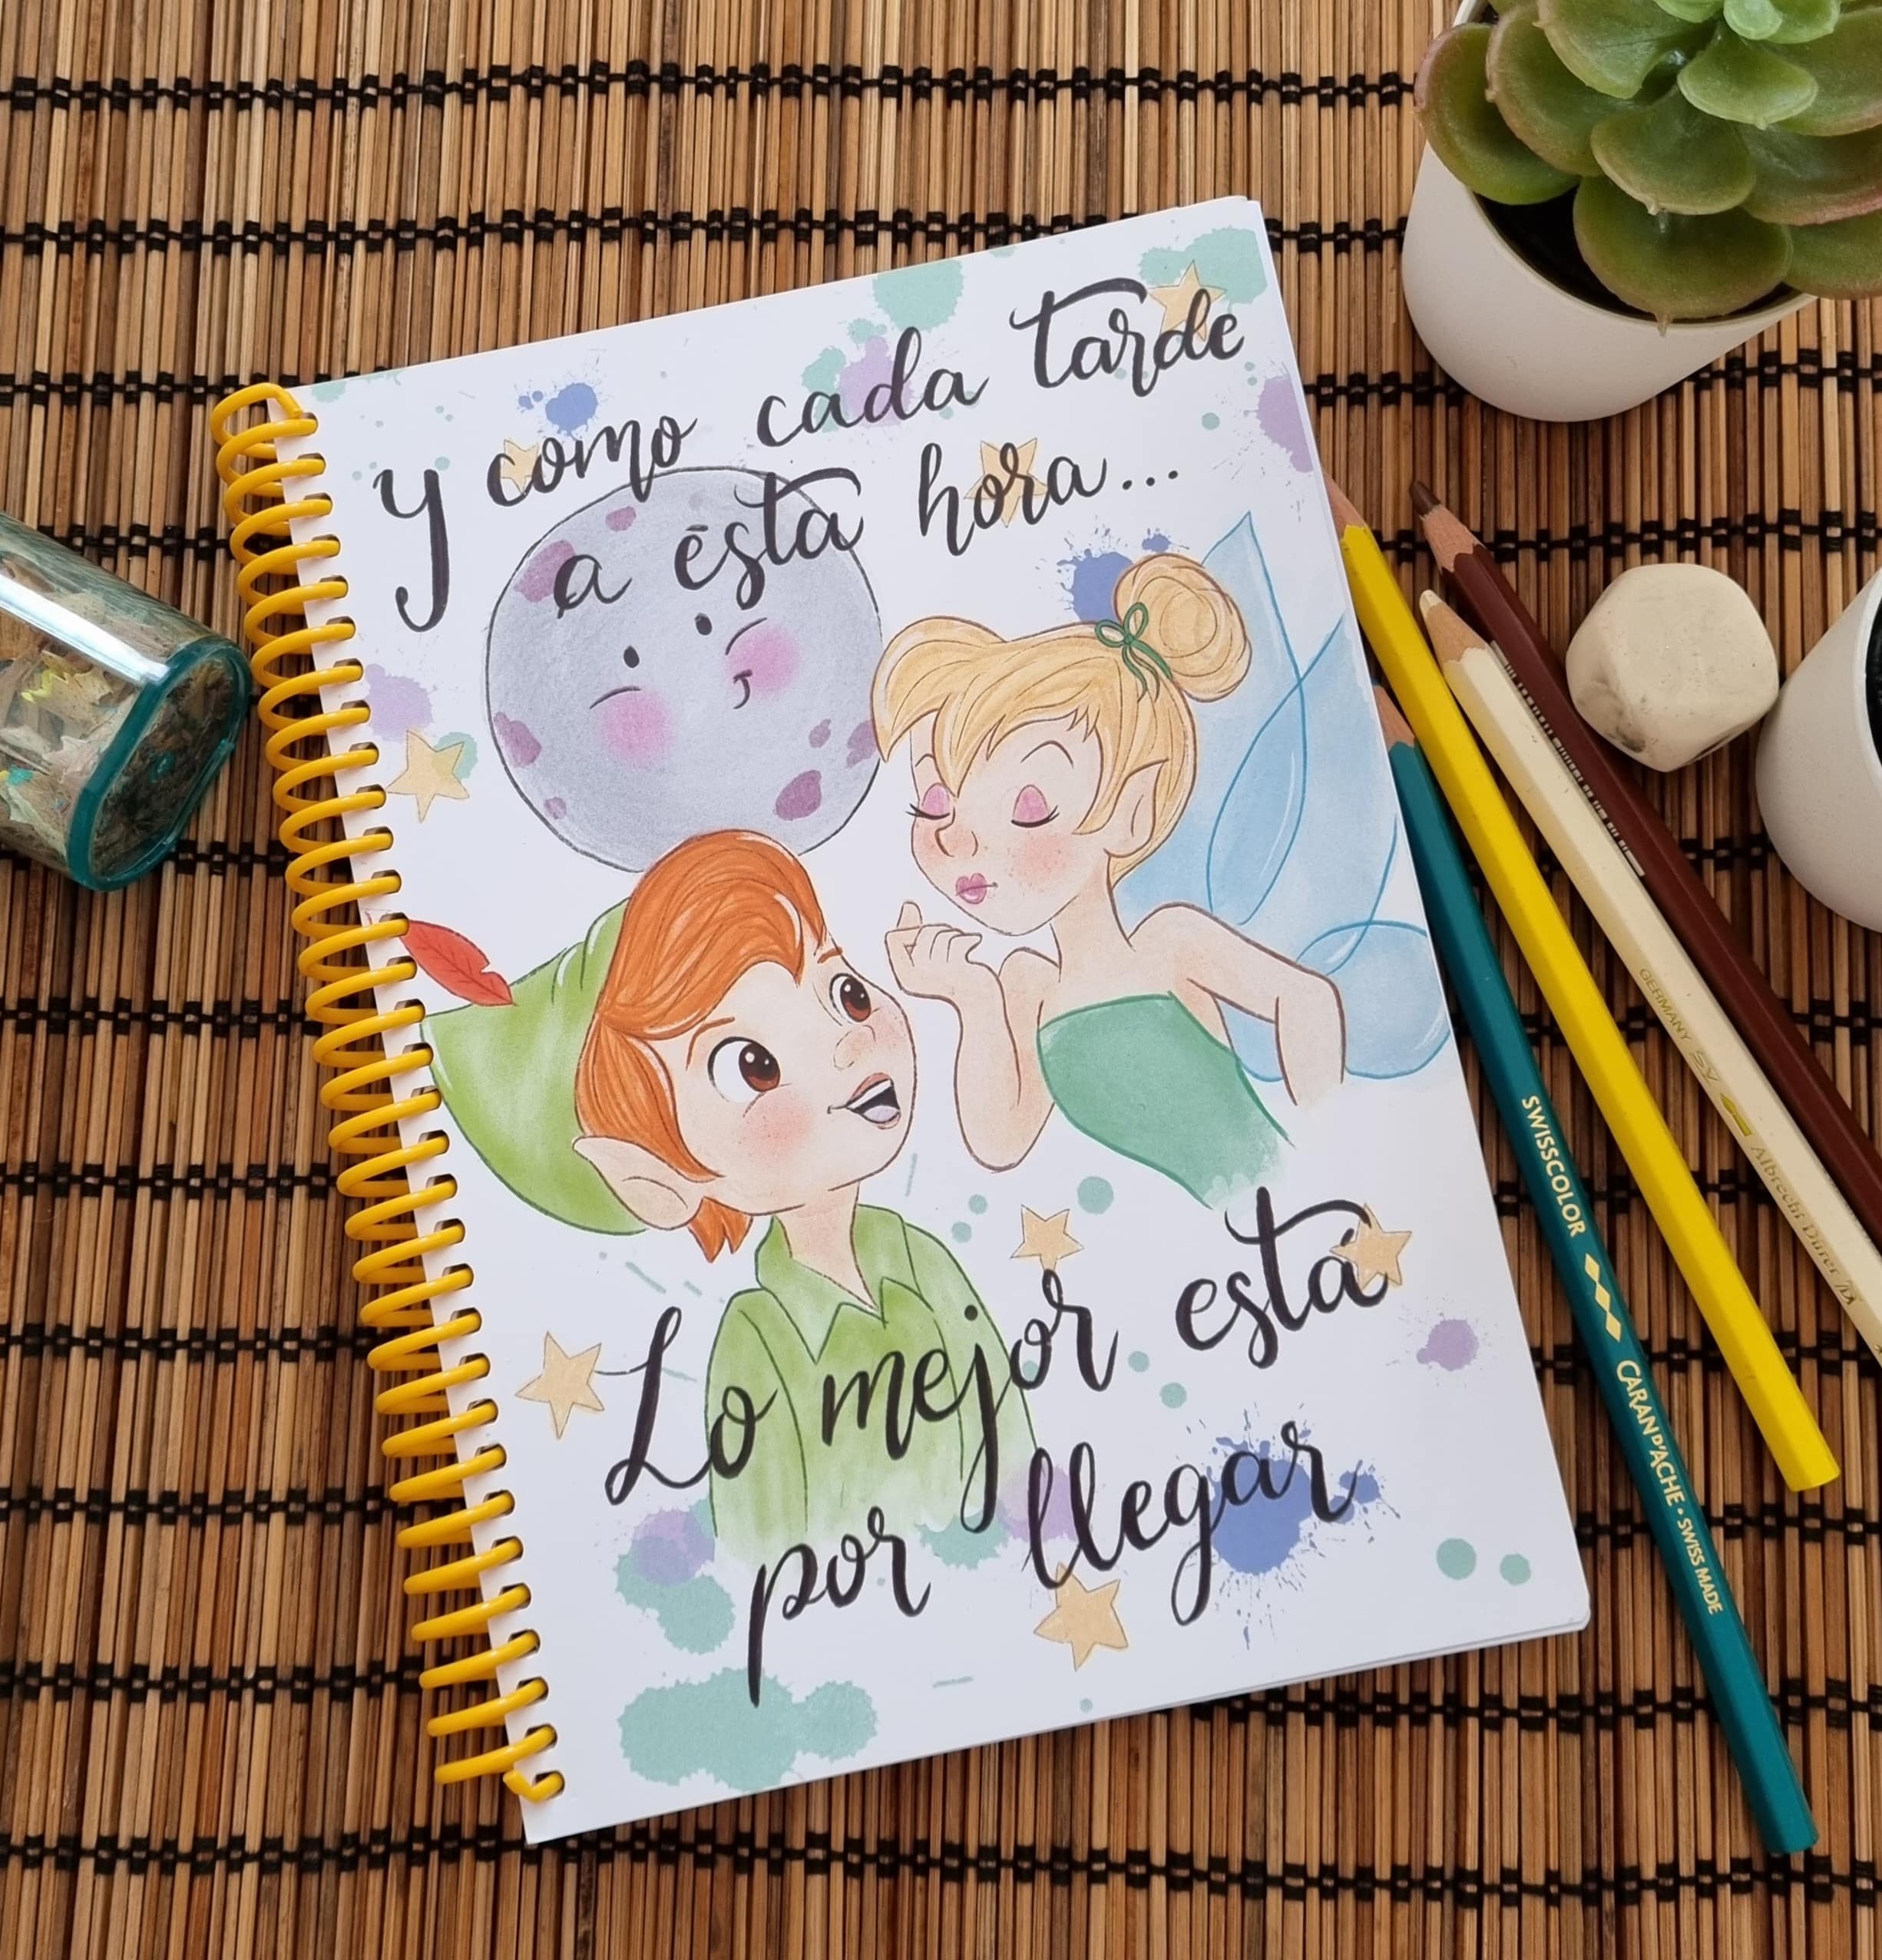 Y como cada tarde
a ésta hora...
Lo mejor está
por llegar
SWISSCOLOR CARAN D'ACHE • SWISS MADE
GERMANY Albrecht Dürer